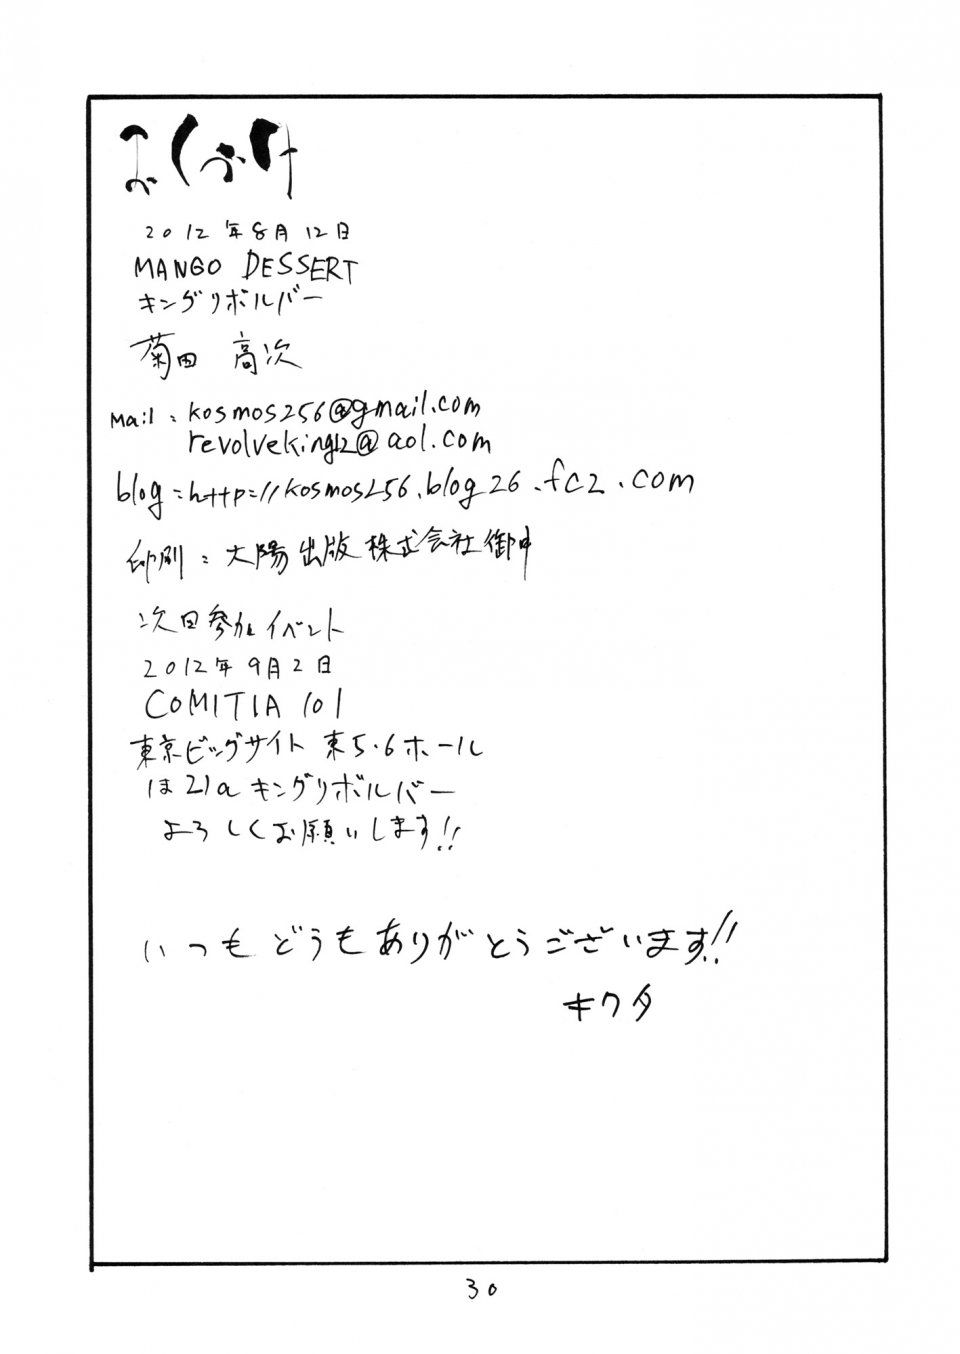 おくづけ
2012年8月12日
MANGO DESSERT
キングリボルバー
菊田 高次
Mail : kosmos256@gmail.com
revolveking12@aol.com
blog : http://kosmos256.blog26.fc2.com
印刷 : 大陽出版株式会社御中
次回参加イベント
2012年9月2日
COMITIA 101
東京ビッグサイト 東5・6ホール
ほ21a キングリボルバー
よろしくお願いします!!
いつもどうもありがとうございます!!
キクタ
30